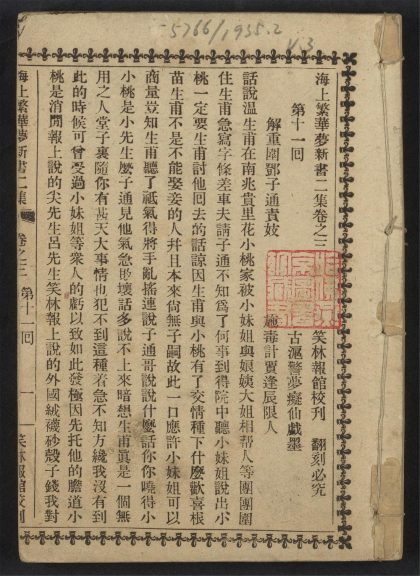 -5766/1935.2
V.3
海上繁華夢新書二集卷之三
笑林報館校刊　翻刻必究
第十一回
古滬警夢癡仙戲墨
解重圍鄧子通責妓　施毒計賈逢辰限人
話說溫生甫在南兆貴里花小桃家被小妹姐與娘姨大姐相幫人等團團圍
住生甫急寫字條差車夫請子通不知爲了何事到得院中聽小妹姐說出小
桃一定要生甫討他回去的話諒因生甫與小桃有了交情種下什麼歡喜根
苗生甫不是不能娶妾的人幷且本來尙無子嗣故此一口應許小妹姐可以
商量豈知生甫聽了祇氣得將手亂搖連說子通哥說說什麼話你你曉得小
小桃是小先生麼子通見他氣急敗壞話多說不上來暗想生甫眞是一個無
用之人堂子裏隨你有甚天大事情也犯不到這種着急不知方纔我沒有到
此的時候可曾受過小妹姐等衆人的虧以致如此發極因先托他的膽道小
桃是消閒報上說的尖先生呂先生笑林報上說的外國絨襪砂殼子錢我對
海上繁華夢新書二集
卷之三　第十一回
一
笑林報館校刊